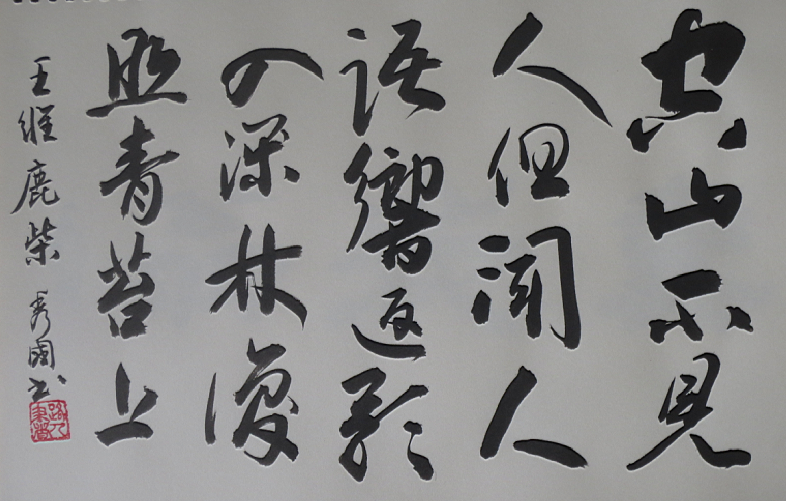 空山不見
人但聞人
語響返影
入深林復
照青苔上
王維鹿柴 秀國書